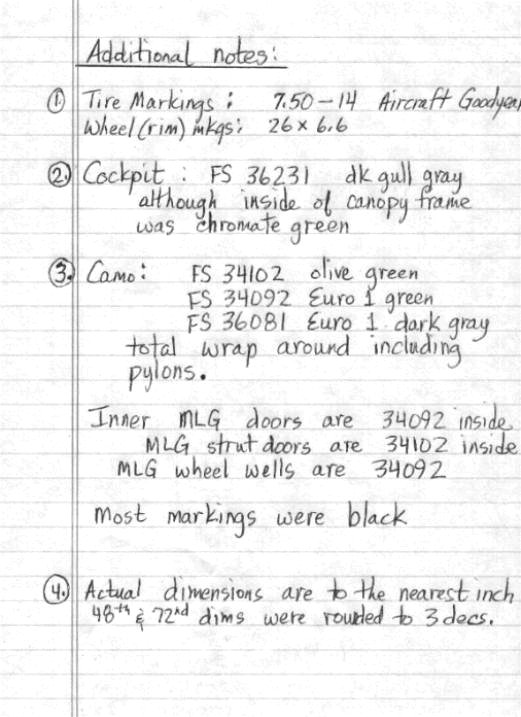 Additional notes:
1. Tire Markings : 7.50-14 Aircraft Goodyear
Wheel (rim) mkgs: 26 x 6.6
2. Cockpit : FS 36231 dk gull gray
although inside of canopy frame
was chromate green
3. Camo: FS 34102 olive green
FS 34092 Euro 1 green
FS 36081 Euro 1 dark gray
total wrap around including
pylons.
Inner MLG doors are 34092 inside
MLG strut doors are 34102 inside
MLG wheel wells are 34092
Most markings were black
4. Actual dimensions are to the nearest inch
48th & 72nd dims were rouded to 3 decs.